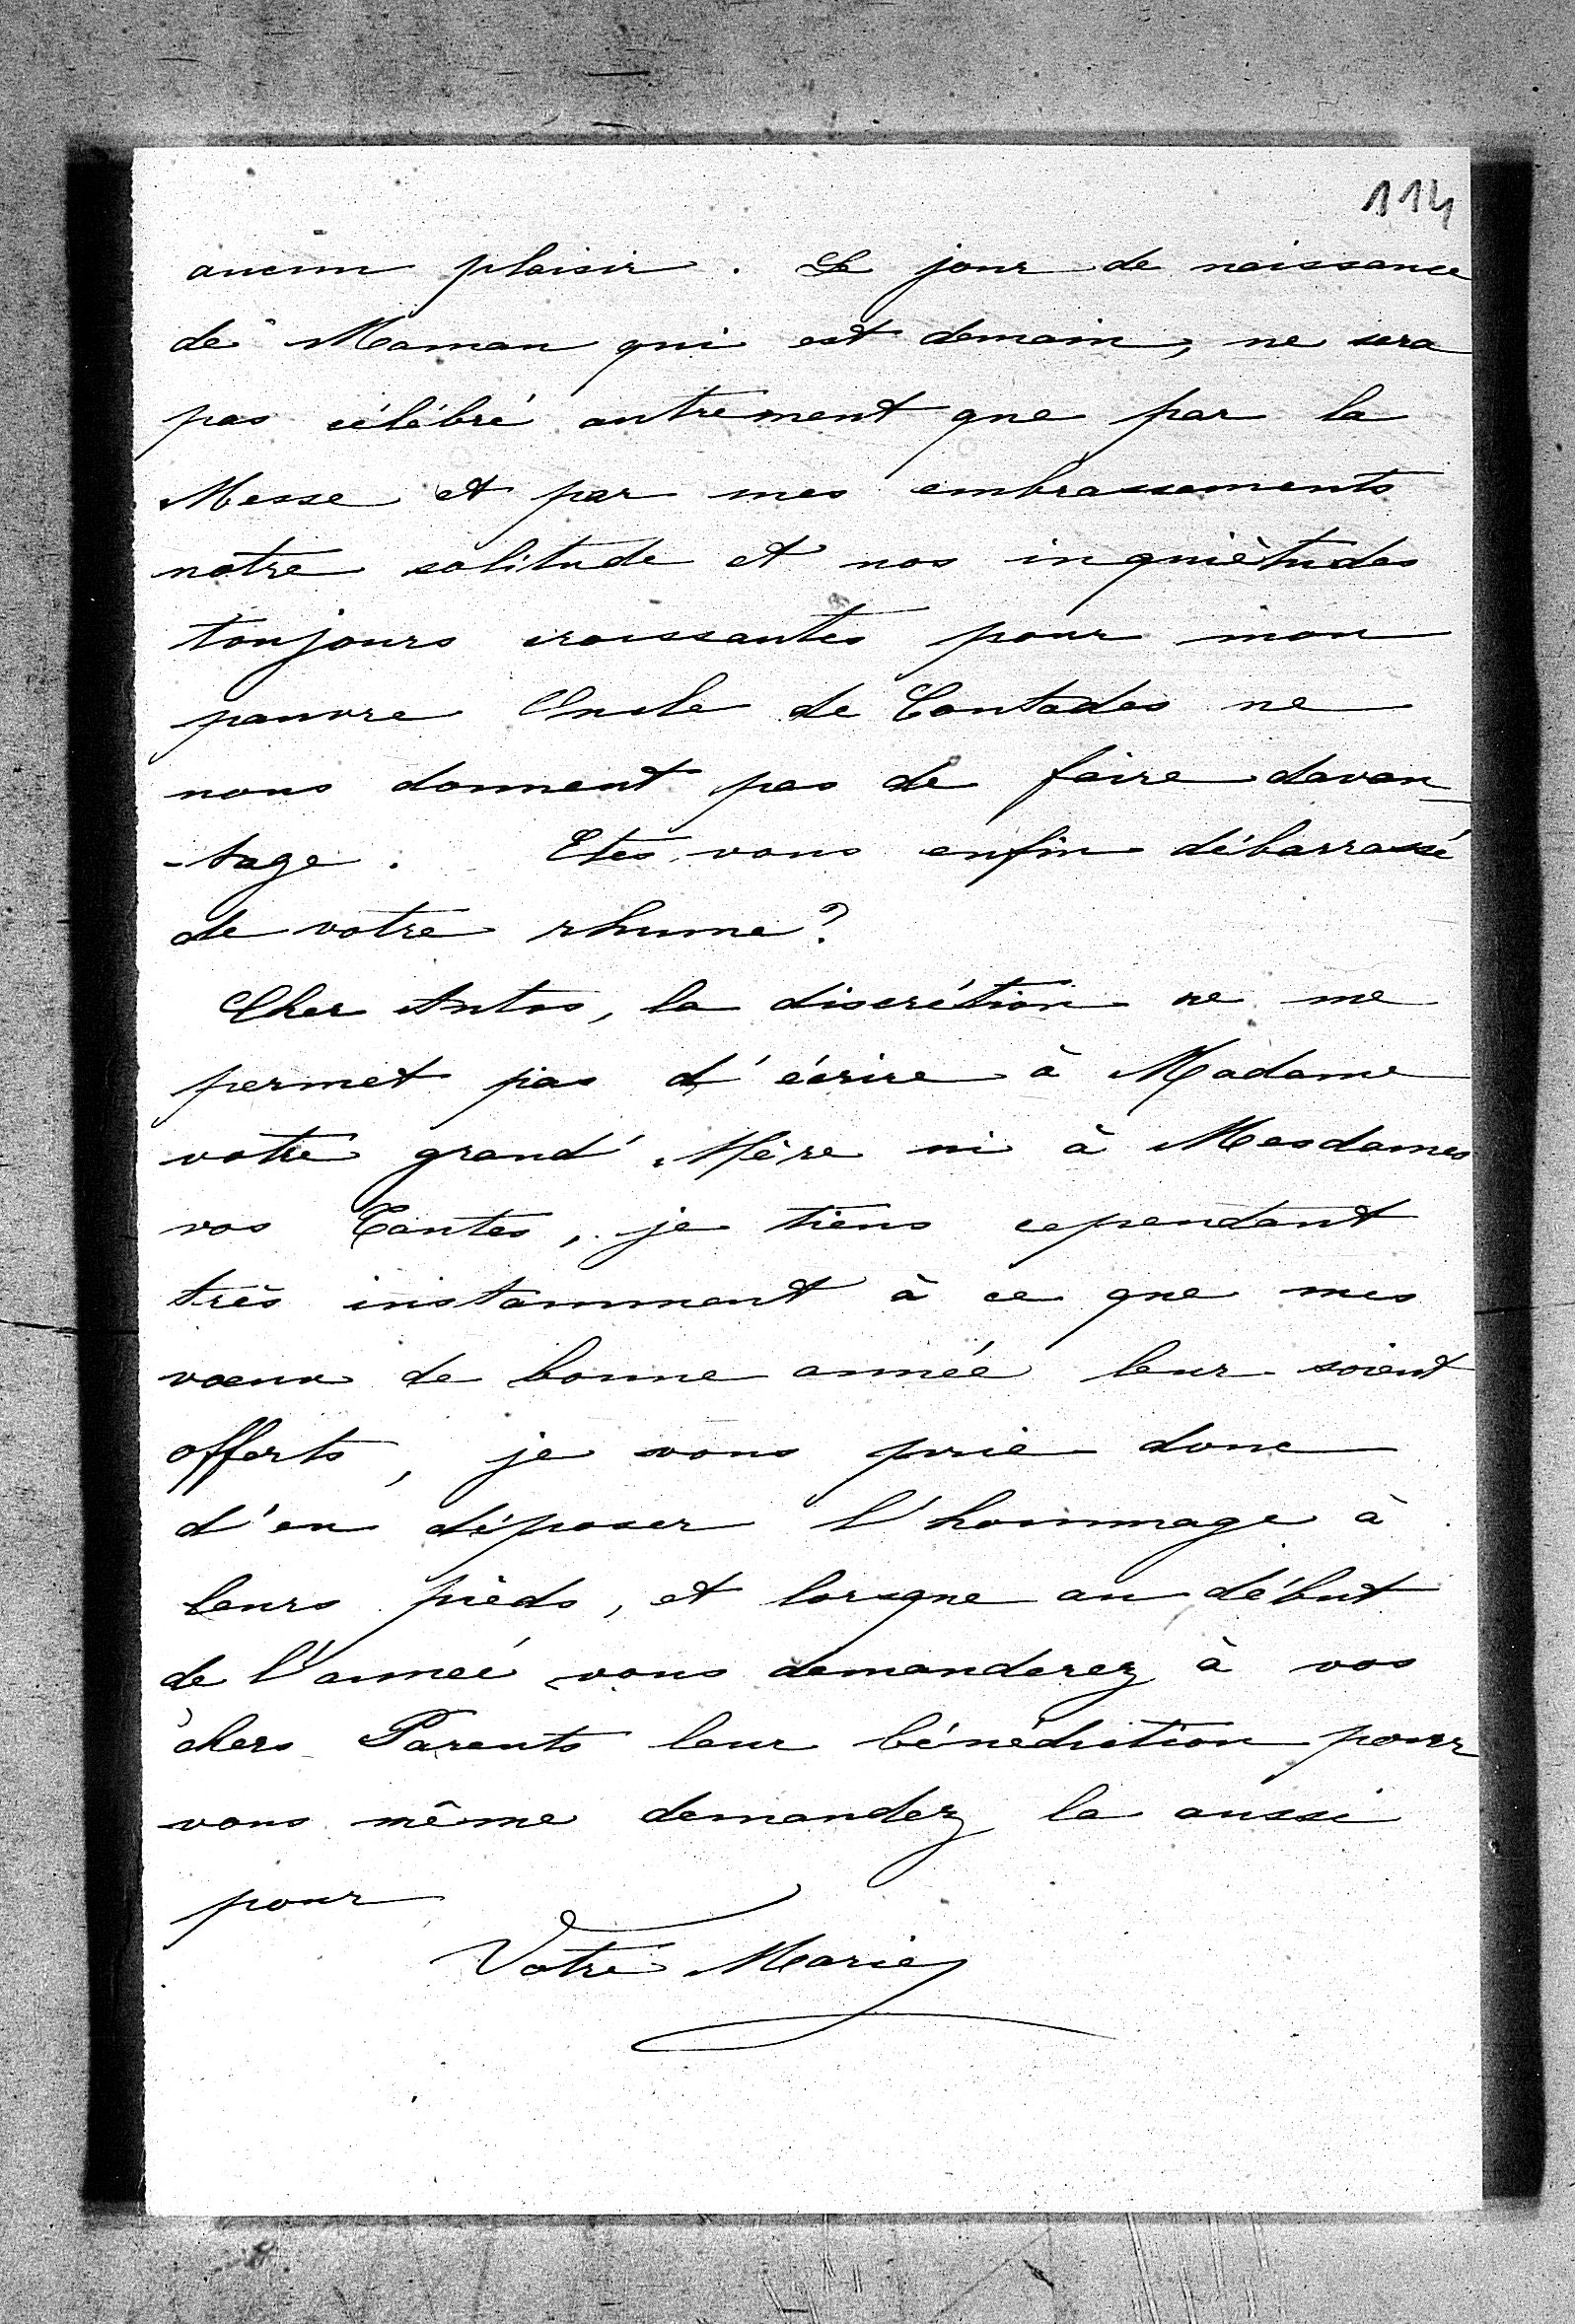 114
aucun plaisir. Le jour de naissance
de Maman qui est demain, ne sera
pas célébré autrement que par la
Messe et par mes embrassements
notre solitude et nos inquiètudes
toujours croissantes pour mon
pauvre Oncle de Contades ne
nous donnent pas de faire davan-
-tage. Etes vous enfin débarrassé
de votre rhume?
Cher Antos, la discrétion ne me
permet pas d'écrire à Madame
votre grand'Mère ni à Mesdames
vos Tantes, je tiens cependant
très instamment à ce que mes
vœux de bonne année leur soient
offerts, je vous prie donc
d'en déposer l'hommage à
leurs pieds, et lorsque au début
de l'année vous demanderez à vos
chers Parents leur bénédiction pour
vous même demandez la aussi
pour
Votre Marie